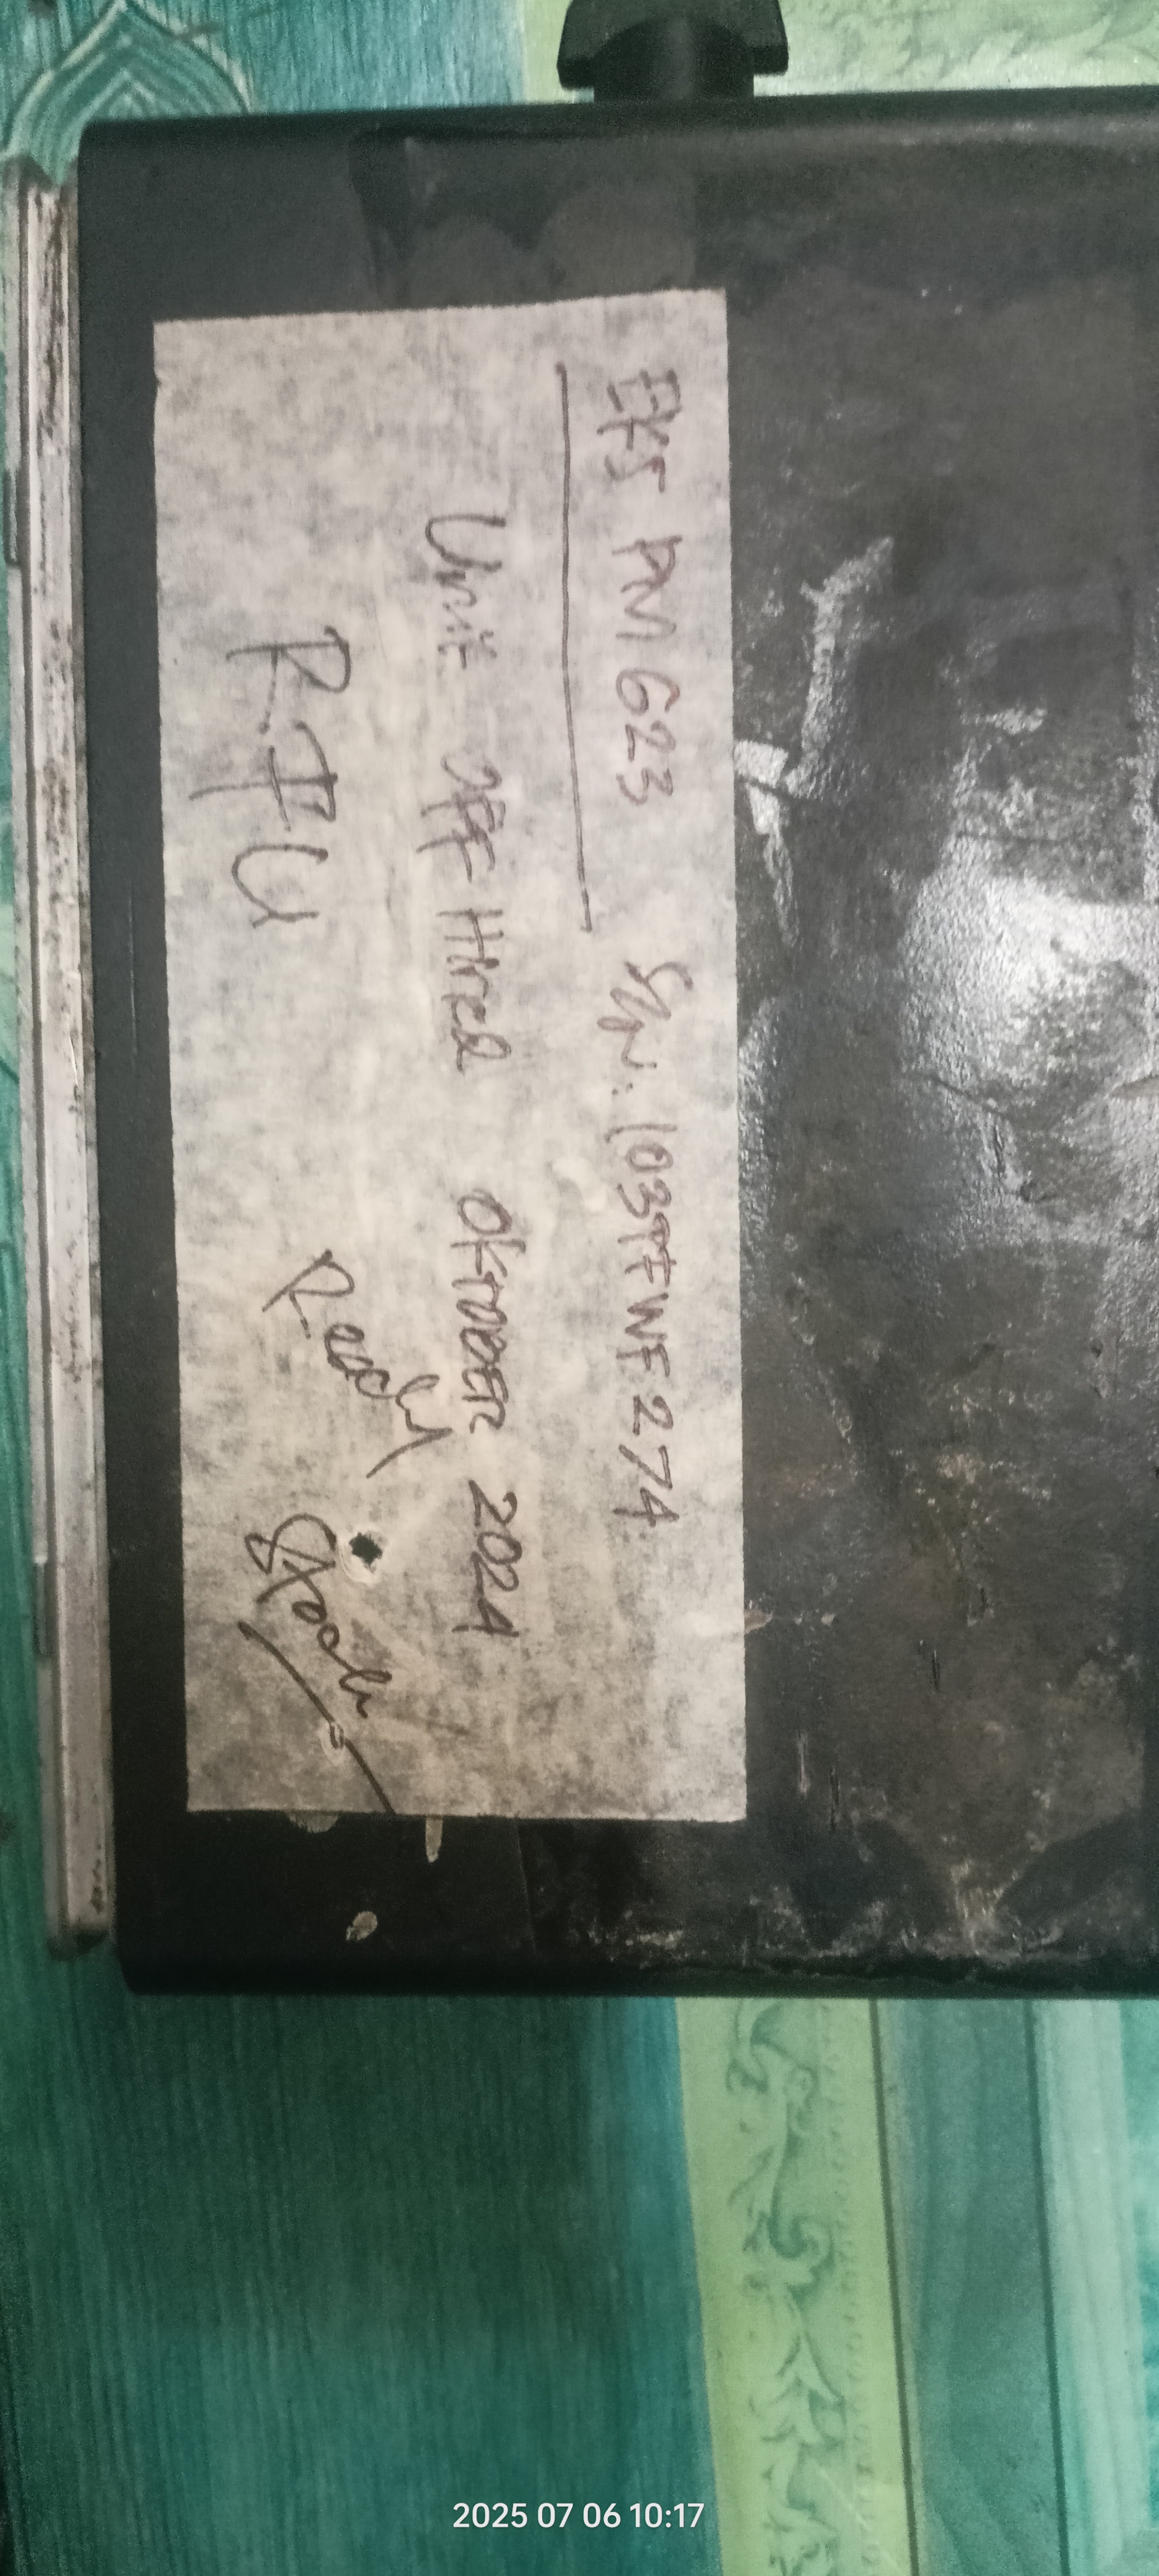 EKS AM 623 S/N. 1039FWF274
Unit OFF Hired OKTOBER 2024
RFU Ready
2025 07 06 10:17